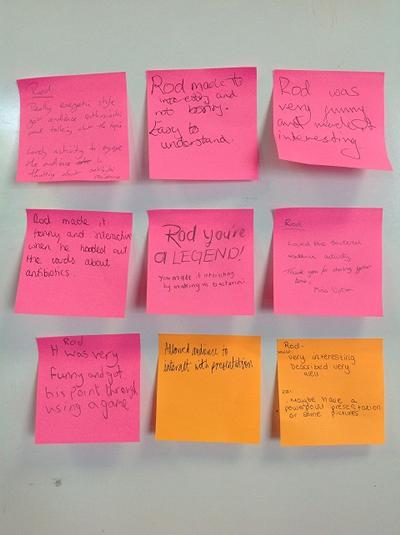 Rod:
Really energetic style
got audience enthusiastic
and talking about the topic
Lovely activity to engage
the audience in
thinking about antibiotic
resistance
Rod made it
interesting and
not boring.
Easy to
understand.
Rod was
very funny
and made it
interesting
Rod made it
funny and interactive
when he handed out
the cards about
antibiotics.
Rod you're
a LEGEND!
You made it interesting
by making us bacteria!
Rod
Loved the bacteria
resistance activity
Thank you for sharing your
time,
Miss
Rod
It was very
funny and got
his point through
using a game
Allowed audience to
interact with presentation
Rod-
very interesting
described very
well
Maybe have a
powerpoint presentation
or some pictures.